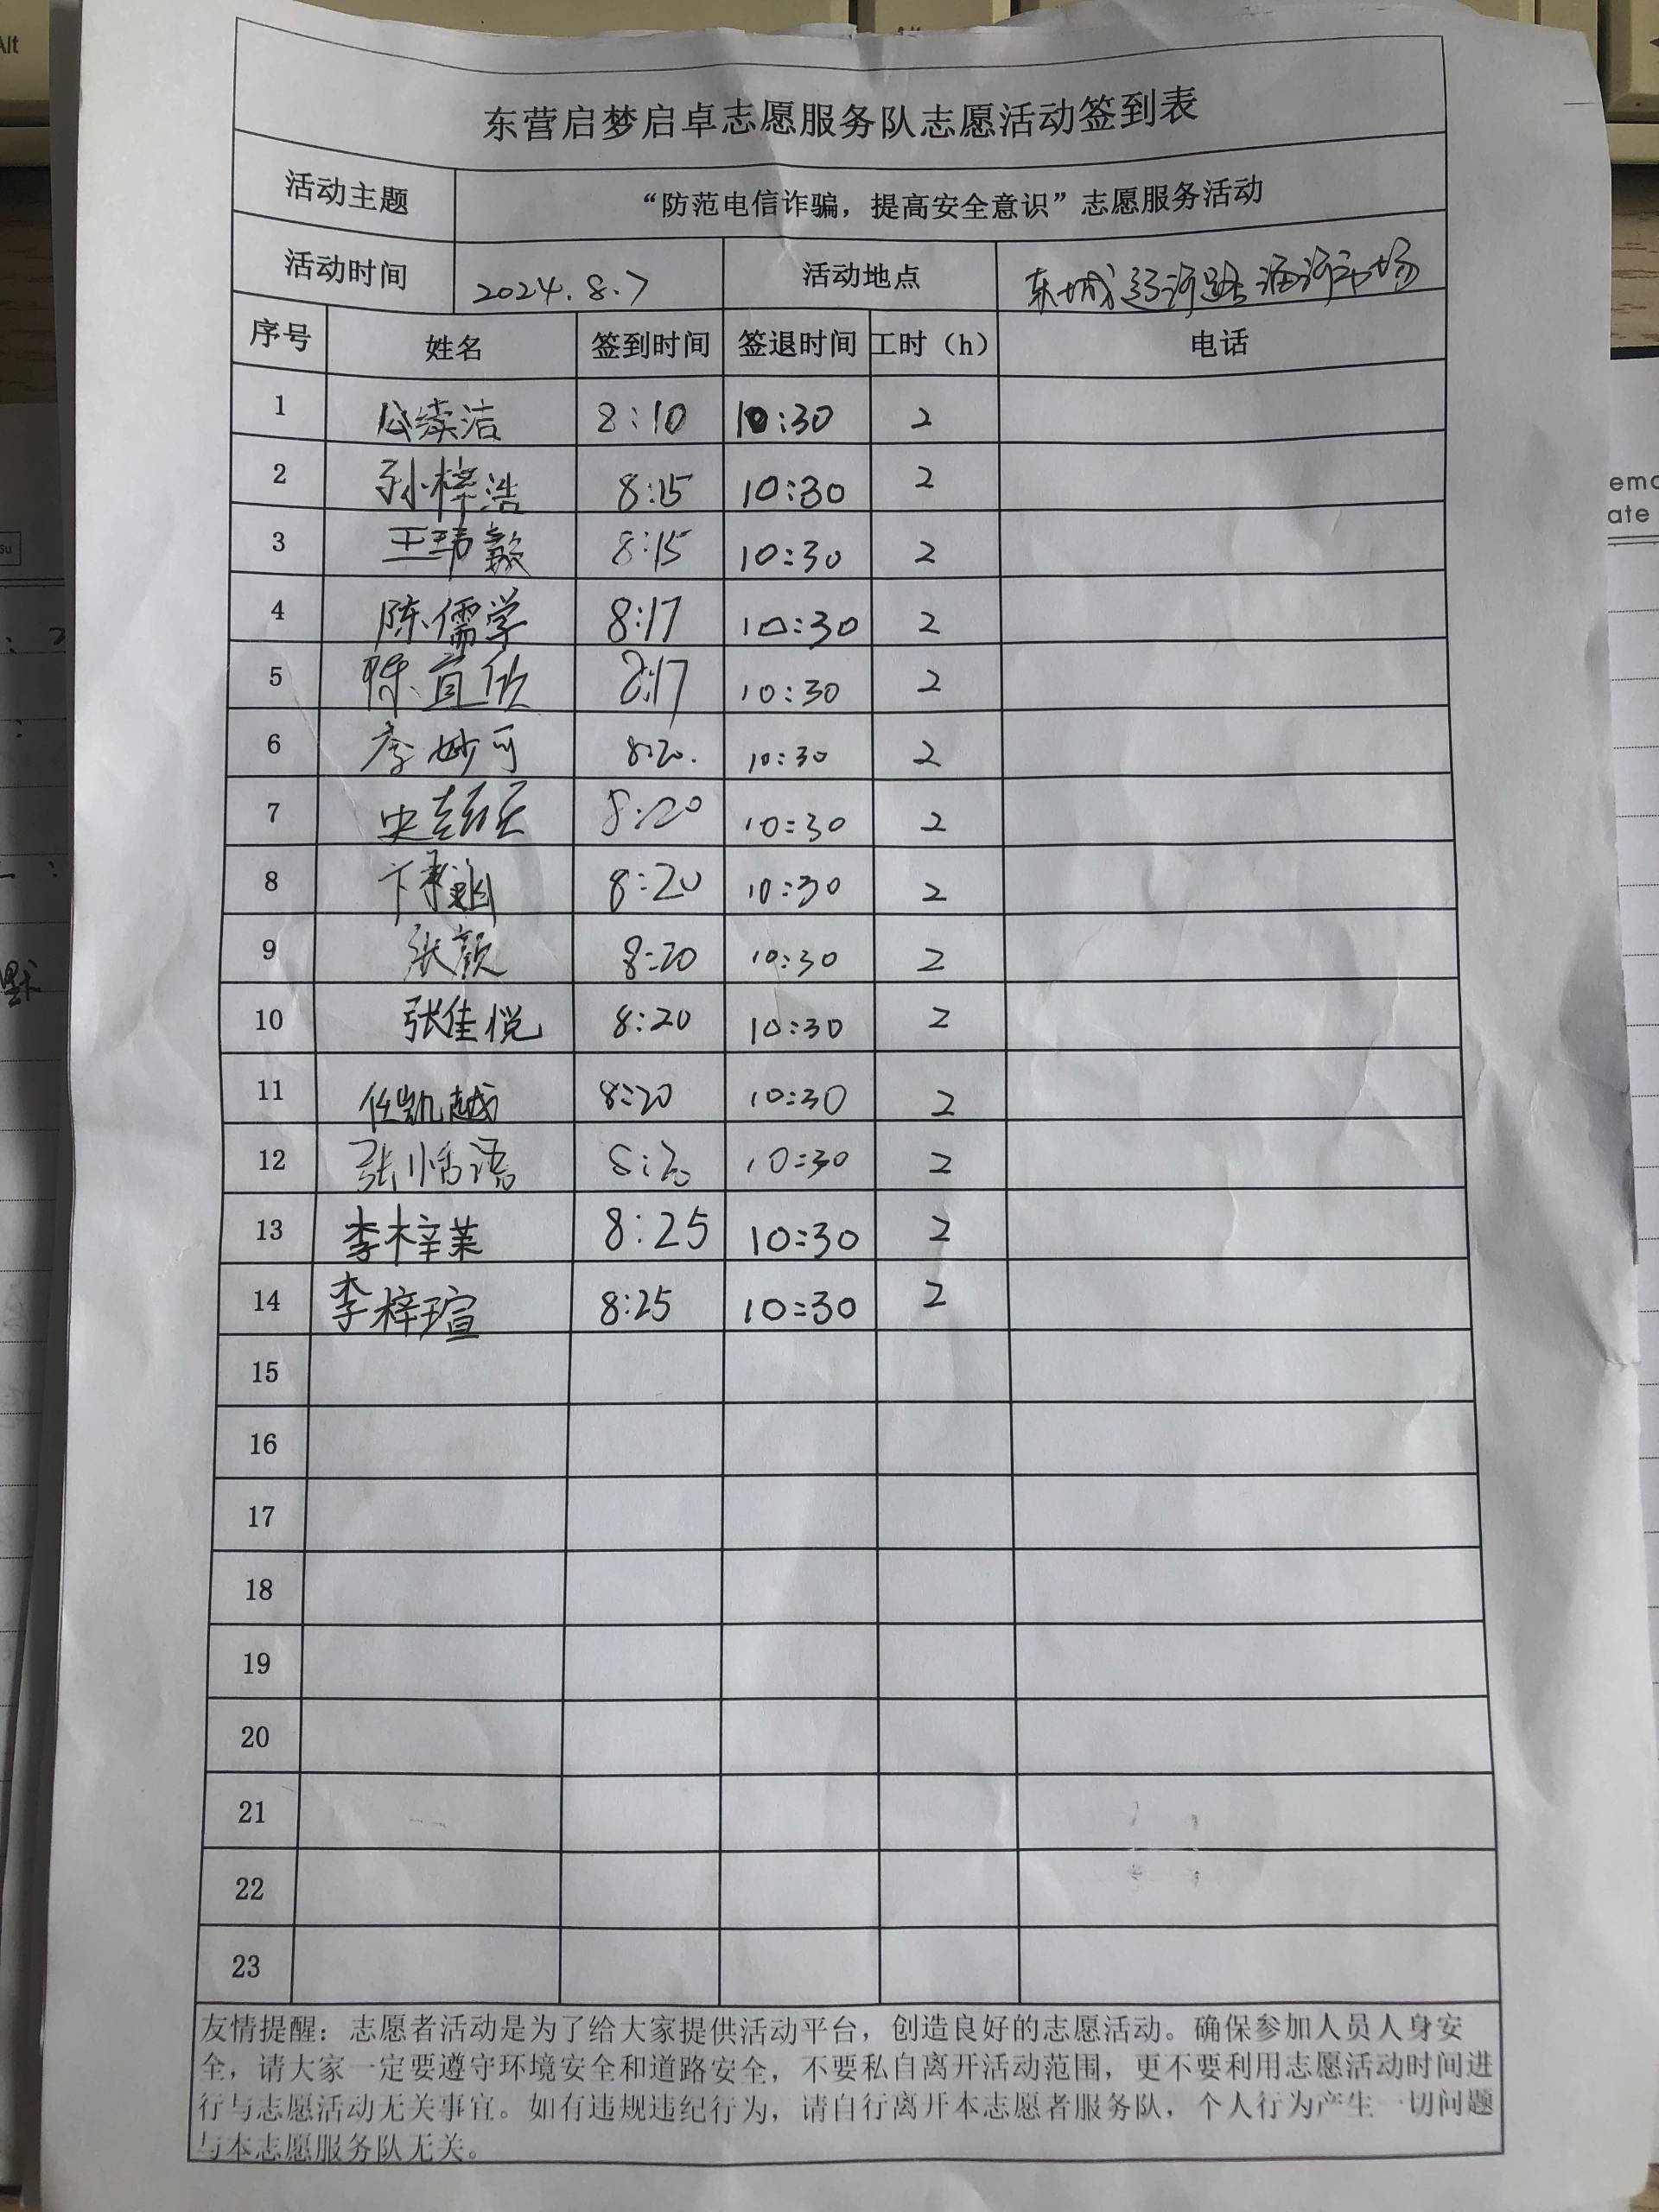 东营启梦启卓志愿服务队志愿活动签到表
活动主题 “防范电信诈骗，提高安全意识”志愿服务活动
活动时间 2024.8.7 活动地点 东城辽河路海河市场
序号 姓名 签到时间 签退时间 工时（h） 电话
1 公续洁 8:10 10:30 2
2 孙梓浩 8:15 10:30 2
3 王玮毅 8:15 10:30 2
4 陈儒学 8:17 10:30 2
5 陈宣欣 8:17 10:30 2
6 李妙可 8:20. 10:30 2
7 史 8:20 10:30 2
8 卞 8:20 10:30 2
9 张颜 8:20 10:30 2
10 张佳悦 8:20 10:30 2
11 任凯越 8:20 10:30 2
12 张恬语 8:20 10:30 2
13 李梓茉 8:25 10:30 2
14 李梓瑄 8:25 10:30 2
15
16
17
18
19
20
21
22
23
友情提醒：志愿者活动是为了给大家提供活动平台，创造良好的志愿活动。确保参加人员人身安
全，请大家一定要遵守环境安全和道路安全，不要私自离开活动范围，更不要利用志愿活动时间进
行与志愿活动无关事宜。如有违规违纪行为，请自行离开本志愿者服务队，个人行为产生一切问题
与本志愿服务队无关。
Alt
emo
ate
su
默